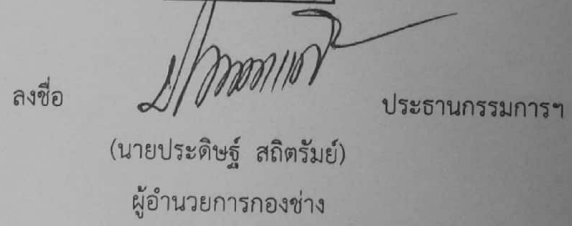 ลงชื่อ ประธานกรรมการฯ
(นายประดิษฐ์ สถิตรัมย์)
ผู้อำนวยการกองช่าง